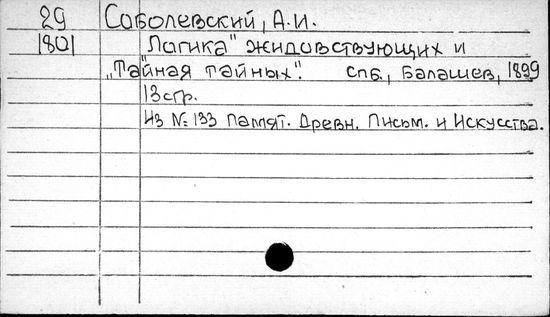 29 Соболевский, А.И.
1801 Логика" жидовствующих и
„Тайная тайных". спб., Балашев, 1899
13стр.
Из № 133 Памят. Древн. Письм. и Искусства.